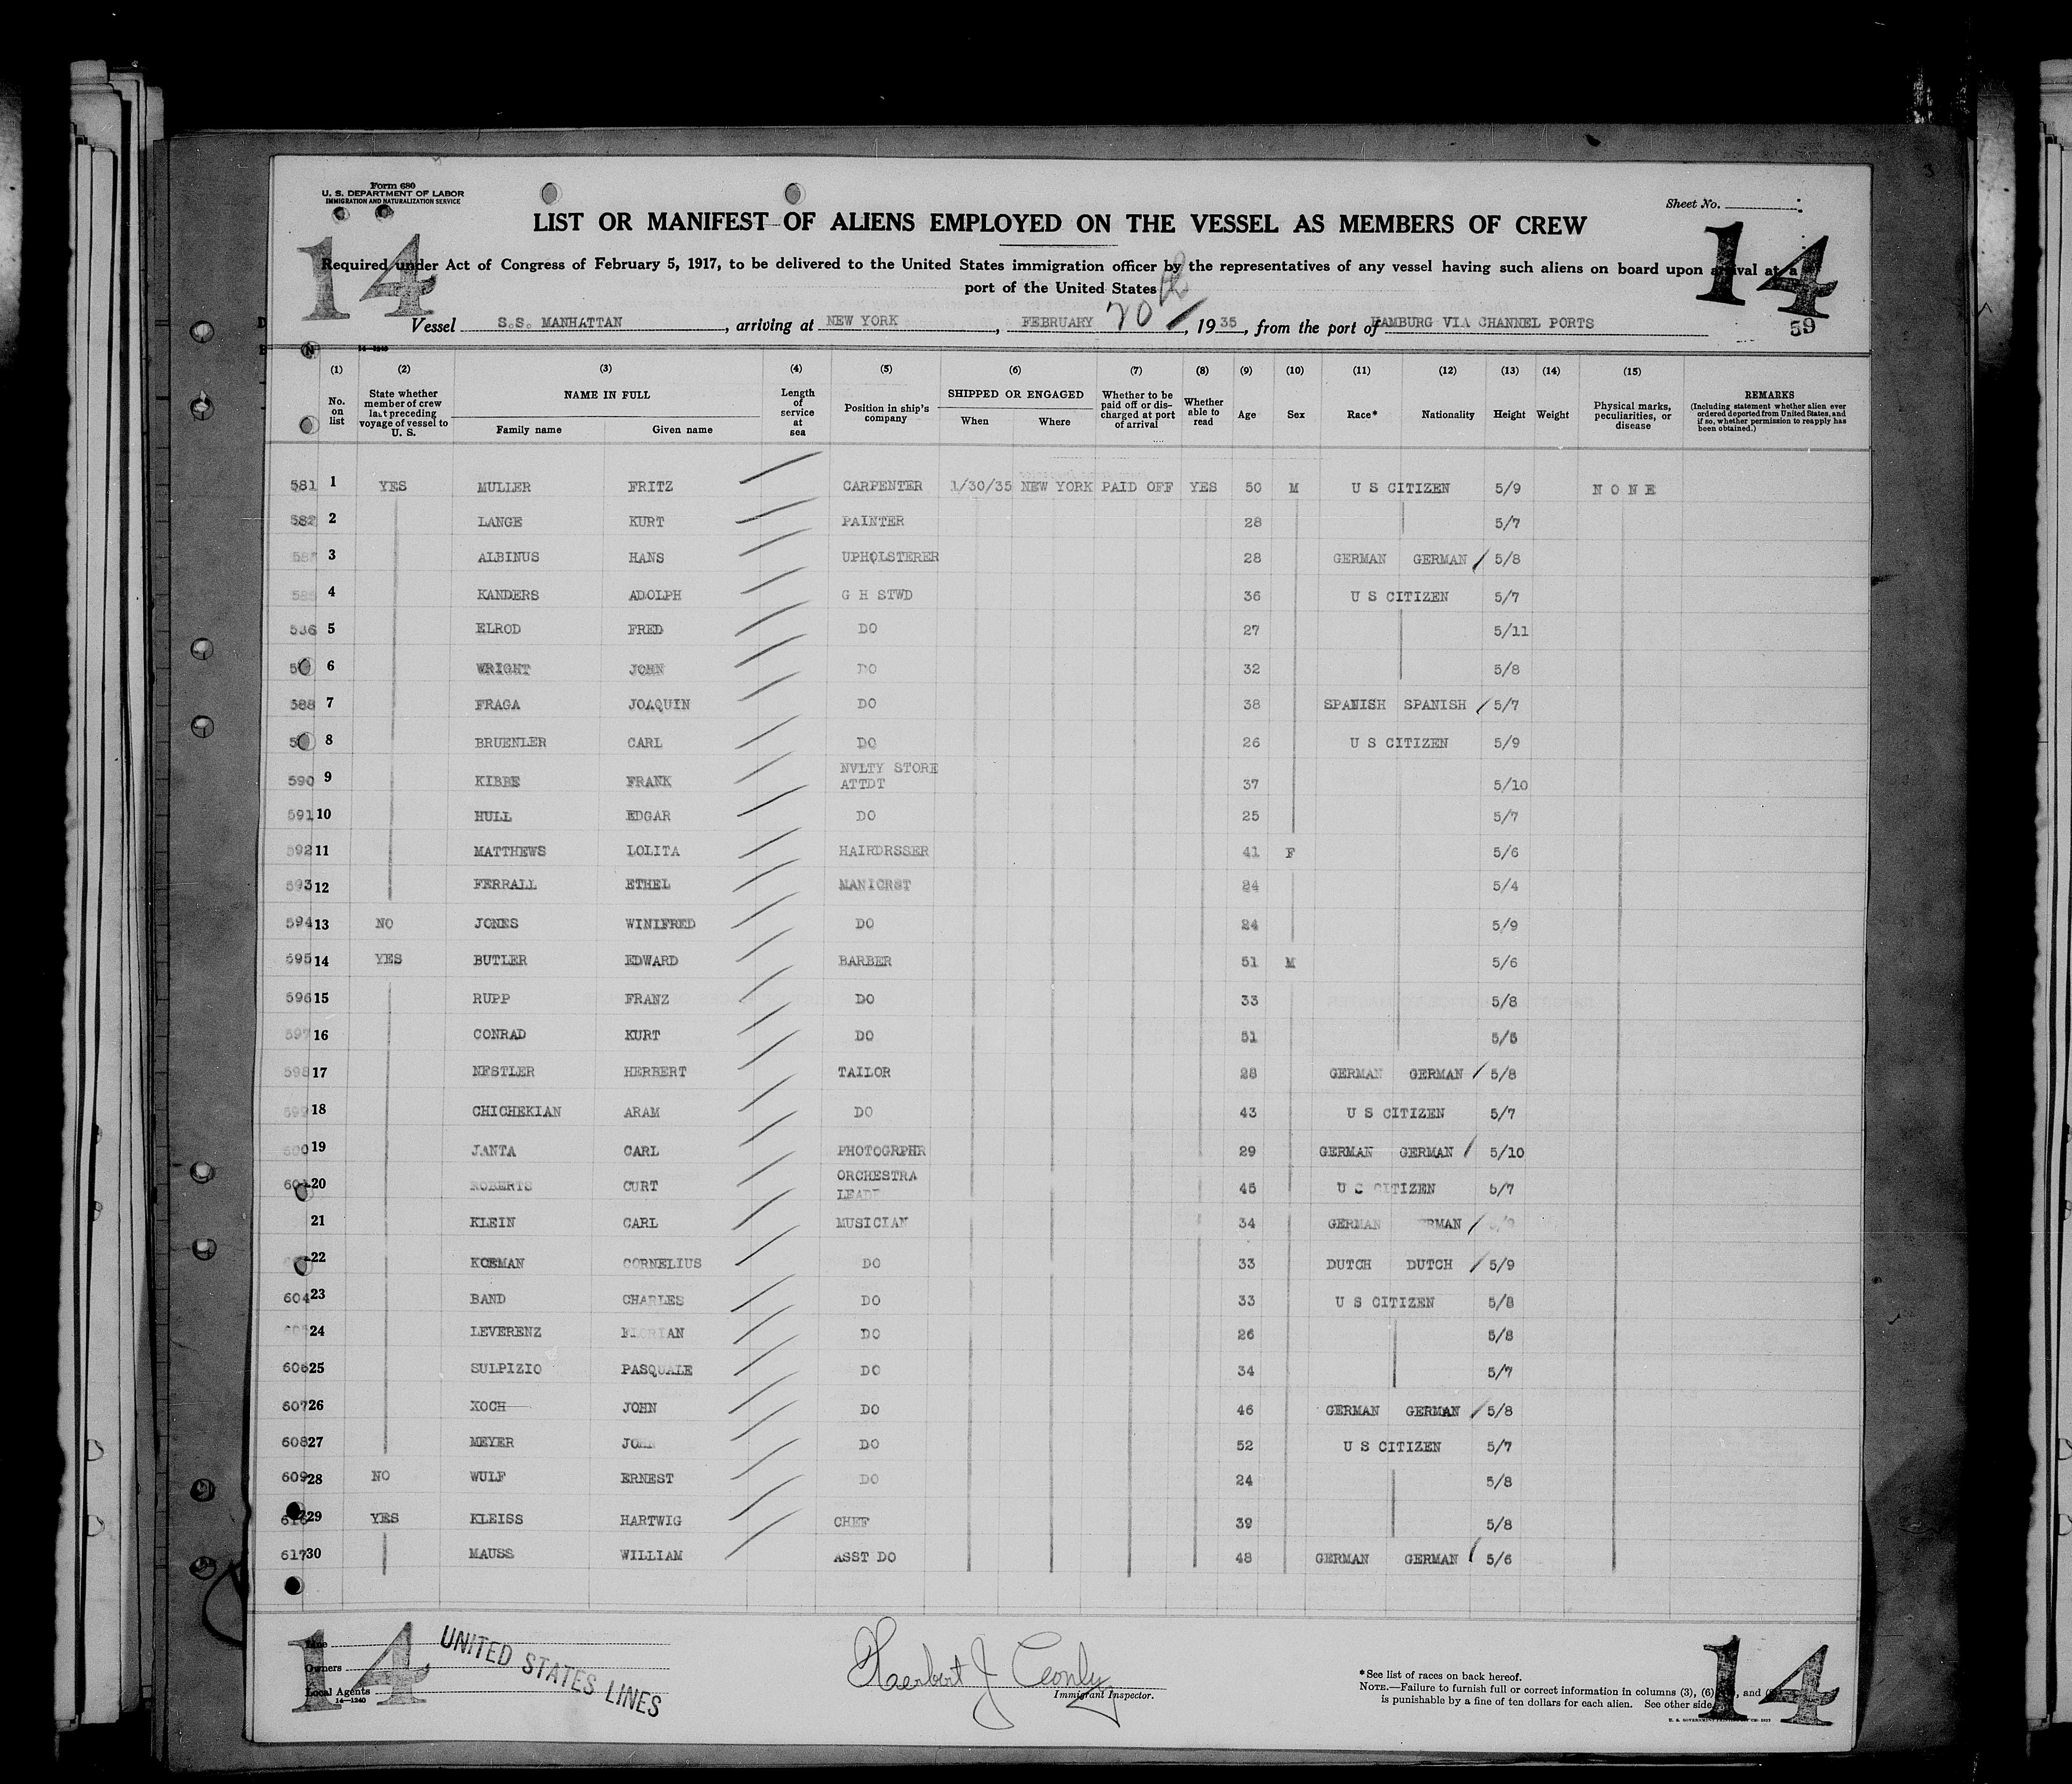 Form 680
U. S. DEPARTMENT OF LABOR
IMMIGRATION AND NATURALIZATION SERVICE
Sheet No.
LIST OR MANIFEST OF ALIENS EMPLOYED ON THE VESSEL AS MEMBERS OF CREW
14 14
Required under Act of Congress of February 5, 1917, to be delivered to the United States immigration officer by the representatives of any vessel having such aliens on board upon arrival at a
port of the United States
Vessel S.S. MANHATTAN, arriving at NEW YORK, FEBRUARY 20th, 1935, from the port of HAMBURG VIA CHANNEL PORTS
59
14-1240
(1) (2) (3) (4) (5) (6) (7) (8) (9) (10) (11) (12) (13) (14) (15)
No. on list
State whether member of crew last preceding voyage of vessel to U. S.
NAME IN FULL
Family name Given name
Length of service at sea
Position in ship's company
SHIPPED OR ENGAGED
When Where
Whether to be paid off or discharged at port of arrival
Whether able to read
Age Sex Race* Nationality Height Weight
Physical marks, peculiarities, or disease
REMARKS
(Including statement whether alien ever ordered deported from United States, and if so, whether permission to reapply has been obtained.)
581 1 YES MULLER FRITZ CARPENTER 1/30/35 NEW YORK PAID OFF YES 50 M U S CITIZEN 5/9 NONE
582 2 LANGE KURT PAINTER 28 5/7
3 ALBINUS HANS UPHOLSTERER 28 GERMAN GERMAN 5/8
4 KANDERS ADOLPH G H STWD 36 U S CITIZEN 5/7
586 5 ELROD FRED DO 27 5/11
6 WRIGHT JOHN DO 32 5/8
588 7 FRAGA JOAQUIN DO 38 SPANISH SPANISH 5/7
8 BRUENLER CARL DO 26 U S CITIZEN 5/9
590 9 KIBBE FRANK NVLTY STORE ATTDT 37 5/10
591 10 HULL EDGAR DO 25 5/7
592 11 MATTHEWS LOLITA HAIRDRSSER 41 F 5/6
593 12 FERRALL ETHEL MANICRST 24 5/4
594 13 NO JONES WINIFRED DO 24 5/9
595 14 YES BUTLER EDWARD BARBER 51 M 5/6
596 15 RUPP FRANZ DO 33 5/8
597 16 CONRAD KURT DO 51 5/5
598 17 NESTLER HERBERT TAILOR 28 GERMAN GERMAN 5/8
599 18 CHICHEKIAN ARAM DO 43 U S CITIZEN 5/7
600 19 JANTA CARL PHOTOGRPHR 29 GERMAN GERMAN 5/10
20 ROBERTS CURT ORCHESTRA 45 U S CITIZEN 5/7
21 KLEIN CARL MUSICIAN 34 GERMAN
22 KOEMAN CORNELIUS DO 33 DUTCH DUTCH 5/9
604 23 BAND CHARLES DO 33 U S CITIZEN 5/8
24 LEVERENZ DO 26 5/8
606 25 SULPIZIO PASQUALE DO 34 5/7
607 26 KOCH JOHN DO 46 GERMAN GERMAN 5/8
608 27 MEYER JOHN DO 52 U S CITIZEN 5/7
609 28 NO WULF ERNEST DO 24 5/8
616 29 YES KLEISS HARTWIG CHEF 39 5/8
617 30 MAUSS WILLIAM ASST DO 48 GERMAN GERMAN 5/6
14 14
Line
Owners
Local Agents
14-1240
UNITED STATES LINES
Herbert J
Immigrant Inspector.
*See list of races on back hereof.
NOTE.—Failure to furnish full or correct information in columns (3), (6) and
is punishable by a fine of ten dollars for each alien. See other side.